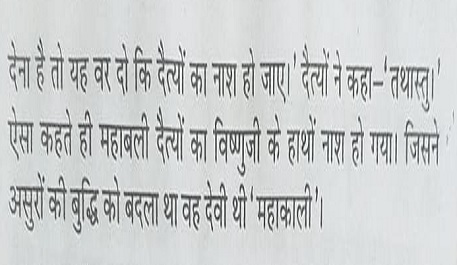 देना है तो यह वर दो कि दैत्यों का नाश हो जाए।' दैत्यों ने कहा–'तथास्तु।'
ऐसा कहते ही महाबली दैत्यों का विष्णुजी के हाथों नाश हो गया। जिसने
असुरों की बुद्धि को बदला था वह देवी थी 'महाकाली'।